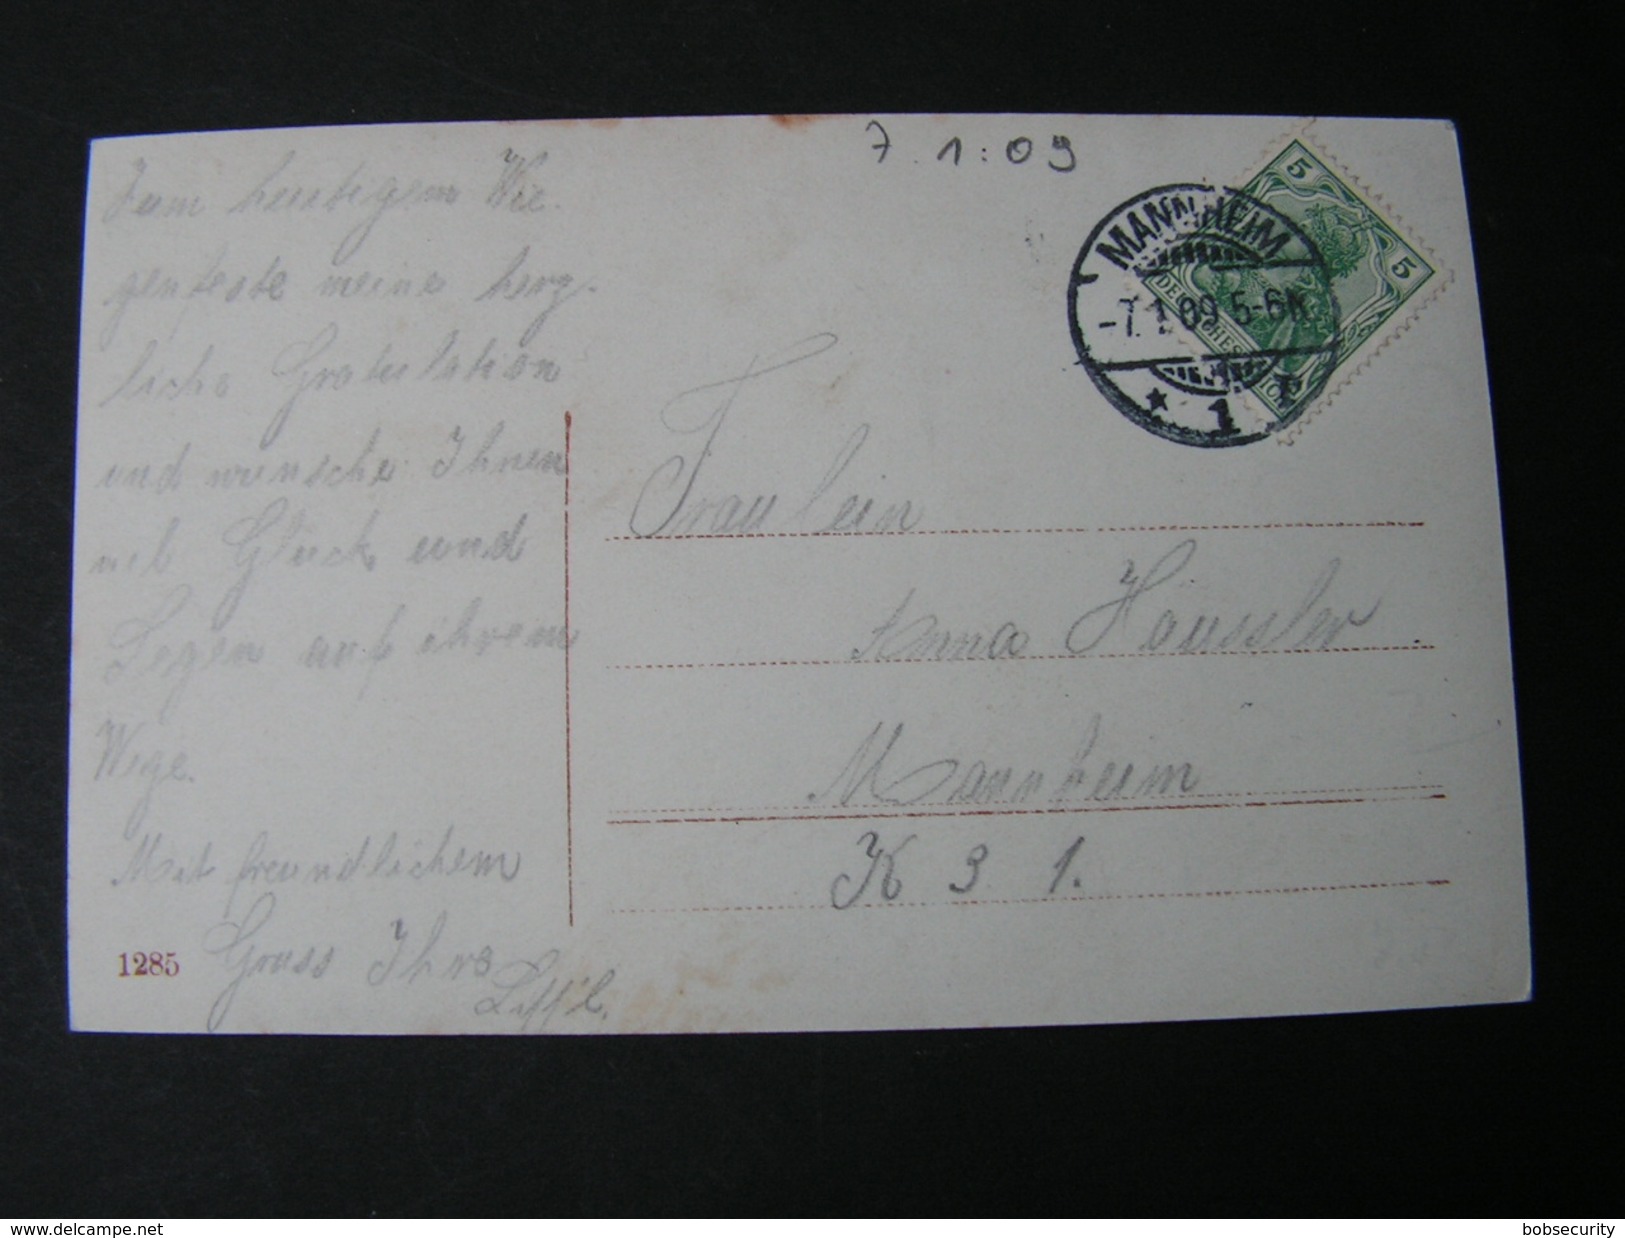 7.1:09
Zum heutigem Wie
genfeste meine herz-
liche Gratulation
und wünsche Ihnen
viel Glück und
Segen auf ihrem
Wege.
Mit freundlichem
Gruss Ihre
1285
MANNHEIM
-7.1.09.5-6N.
* 1 *
5
5
DEUTSCHES
Fräulein
Anna Häussler
Mannheim
K 3 1.
www.delcampe.net
bobsecurity